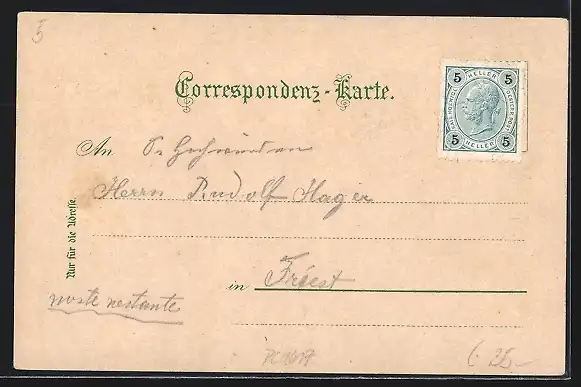 5
Correspondenz-Karte.
5 HELLER 5
5 HELLER 5
An Sr Hochwürden
Herrn Rudolf Hager
Nur für die Adresse.
in Friest
poste restante